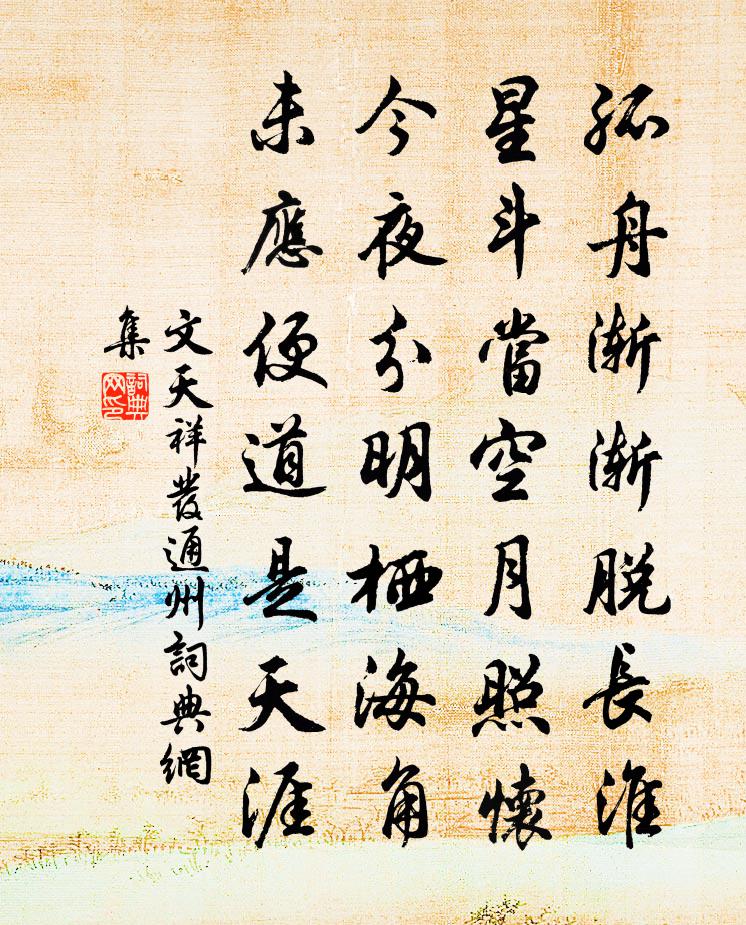 孤舟漸漸脱長淮
星斗當空月照懷
今夜分明栖海角
未應便道是天涯
文天祥發通州詞典網
集
詞典網印